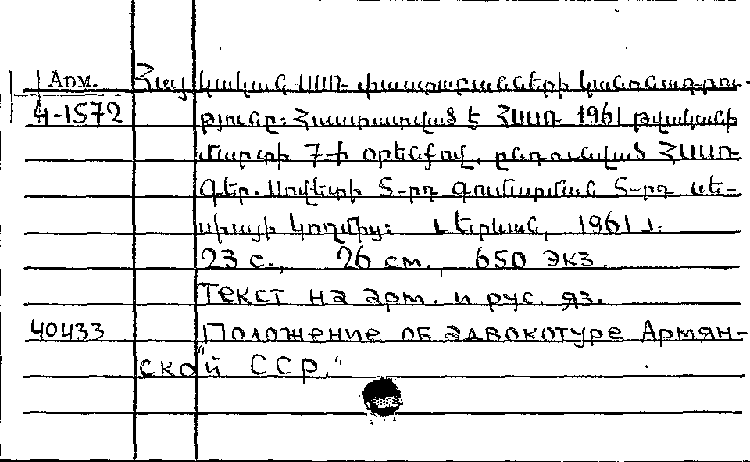 Арм. Հայկական ՍՍՌ փաստաբանների կանոնադրու-
4-1572 թյունը: Հաստատված է ՀՍՍՌ 1961 թվականի
մարտի 7-ի օրենքով, ընդունված ՀՍՍՌ
Գեր. Սովետի 5-րդ գումարման 5-րդ սե-
սիայի կողմից: [Երևան, 1961].
23 с., 26 см. 650 экз.
Текст на арм. и рус. яз.
40433 "Положение об адвокотуре Армян-
ской ССР."